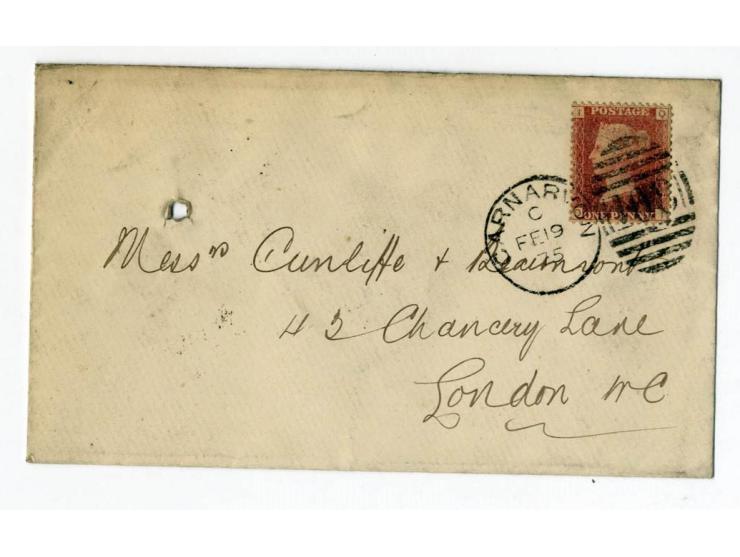 I O
POSTAGE
ONE PENNY
CARNARVON
C
FE 19
75
Messrs Cunliffe + Beaumont
43 Chancery Lane
London WC